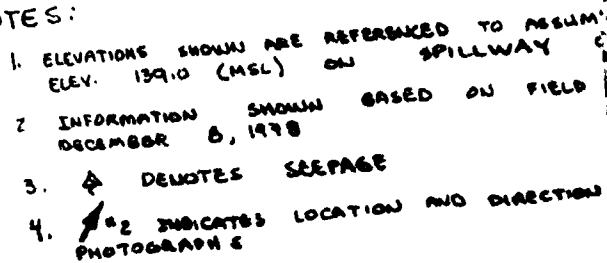 OTES:
1. ELEVATIONS SHOWN ARE REFERENCED TO ASSUM
ELEV. 139.0 (MSL) ON SPILLWAY C
2 INFORMATION SHOWN BASED ON FIELD
DECEMBER 8, 1978
3. DENOTES SEEPAGE
4. #2 INDICATES LOCATION AND DIRECTION
PHOTOGRAPHS